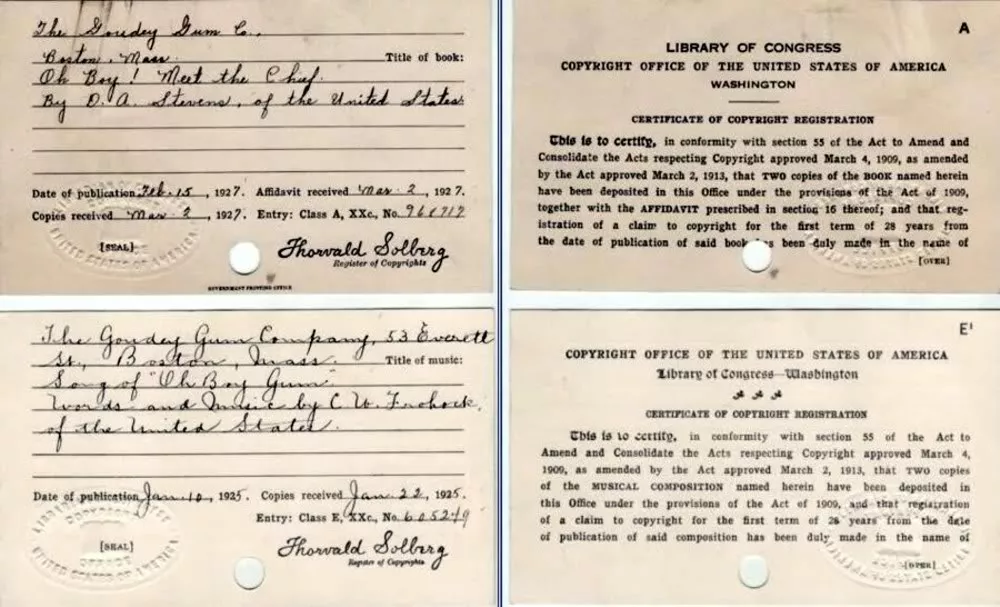 The Goudey Gum Co.,
Boston, Mass. Title of book:
Oh Boy! Meet the Chief.
By D. A. Stevens, of the United States
Date of publication Feb. 15, 1927. Affidavit received Mar. 2, 1927.
Copies received Mar. 2, 1927. Entry: Class A, XXc., No.
[SEAL]
Thorvald Solberg
Register of Copyrights
GOVERNMENT PRINTING OFFICE
A
LIBRARY OF CONGRESS
COPYRIGHT OFFICE OF THE UNITED STATES OF AMERICA
WASHINGTON
CERTIFICATE OF COPYRIGHT REGISTRATION
This is to certify, in conformity with section 55 of the Act to Amend and
Consolidate the Acts respecting Copyright approved March 4, 1909, as amended
by the Act approved March 2, 1913, that TWO copies of the BOOK named herein
have been deposited in this Office under the provisions of the Act of 1909,
together with the AFFIDAVIT prescribed in section 16 thereof; and that reg-
istration of a claim to copyright for the first term of 28 years from
the date of publication of said book s been duly made in the name of
[OVER]
The Goudey Gum Company, 53 Everett
St., Boston, Mass. Title of music:
Song of "Oh Boy Gum"
Words and Music by C. W. Frohock,
of the United States.
Date of publication Jan. 10, 1925. Copies received Jan. 22, 1925.
Entry: Class E, XXc., No. 605249
[SEAL]
Thorvald Solberg
Register of Copyrights
E'
COPYRIGHT OFFICE OF THE UNITED STATES OF AMERICA
Library of Congress—Washington
CERTIFICATE OF COPYRIGHT REGISTRATION
This is to certify, in conformity with section 55 of the Act to
Amend and Consolidate the Acts respecting Copyright approved March 4,
1909, as amended by the Act approved March 2, 1913, that TWO copies
of the MUSICAL COMPOSITION named herein have been deposited in
this Office under the provisions of the Act of 1909, and that registration
of a claim to copyright for the first term of 28 years from the date
of publication of said composition has been duly made in the name of
[OVER]